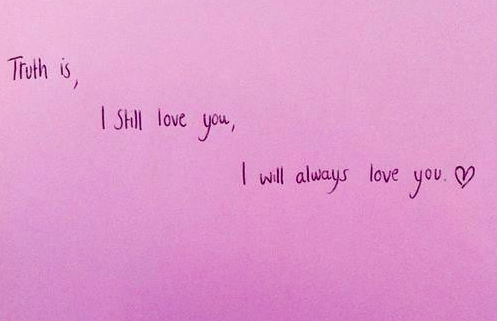 Truth is,
I Still love you,
I will always love you. ♡